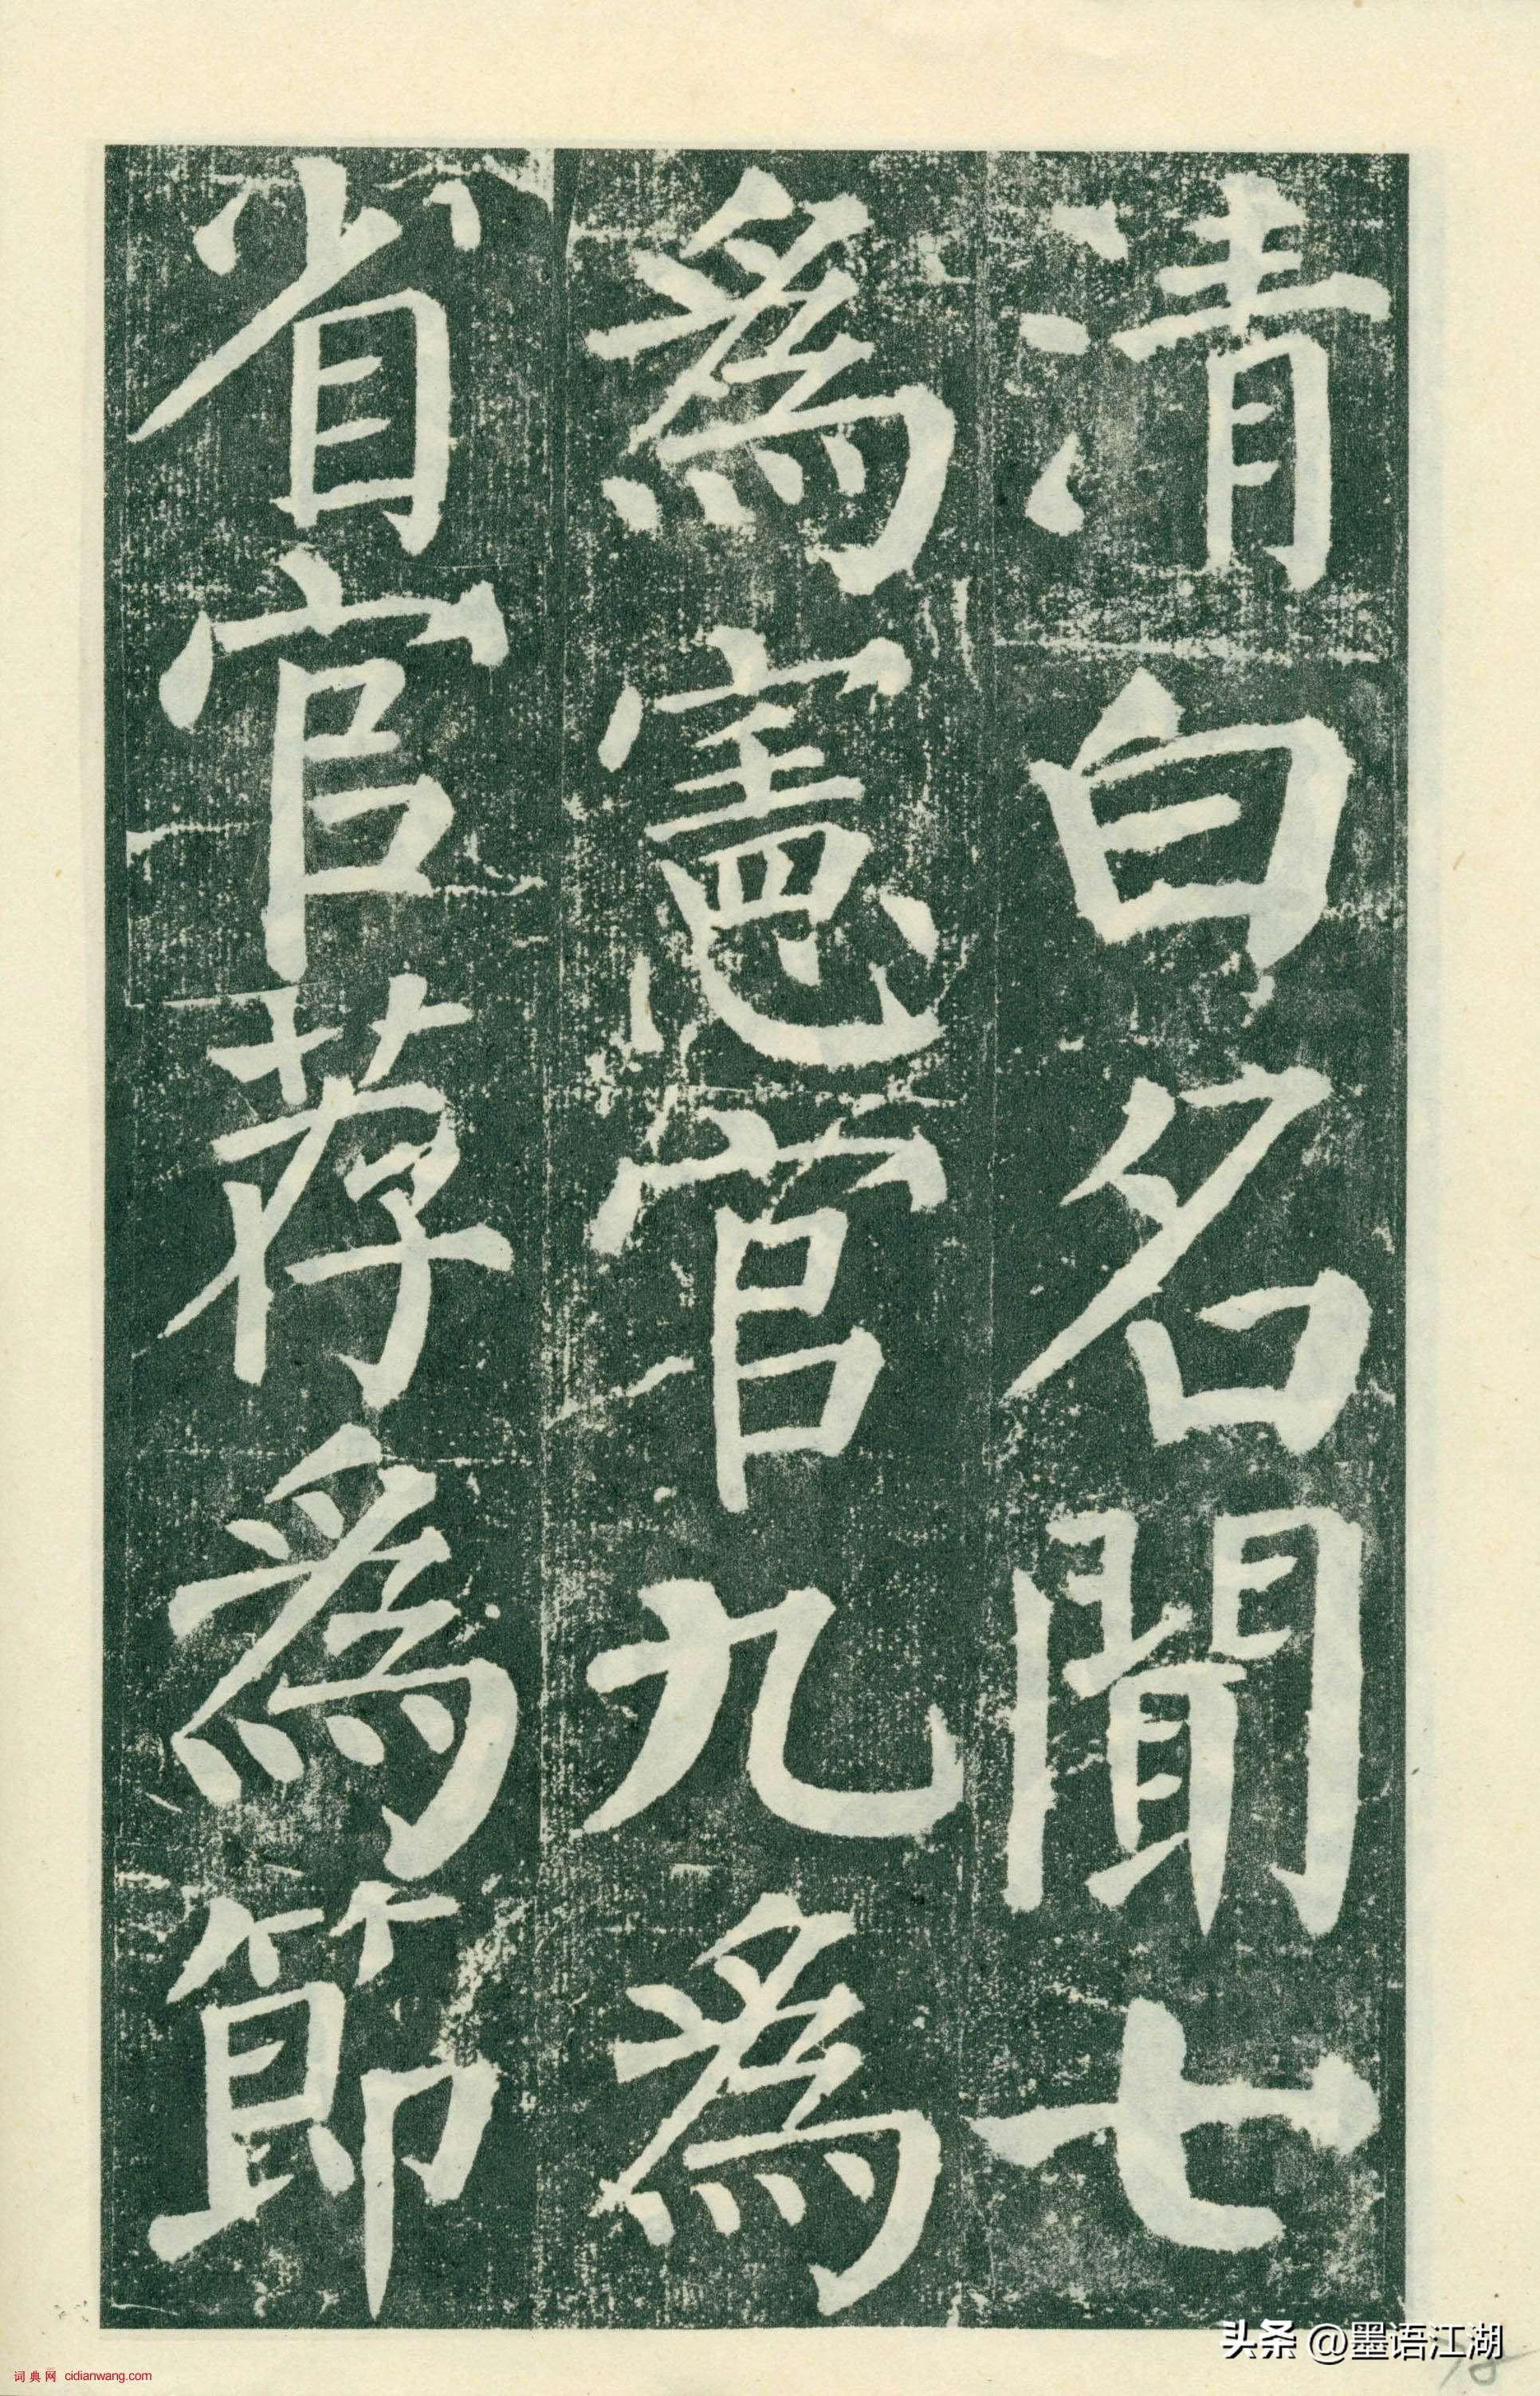 清白名聞七
為憲官九為
省官荐為節
头条 @墨语江湖
词典网 cidianwang.com